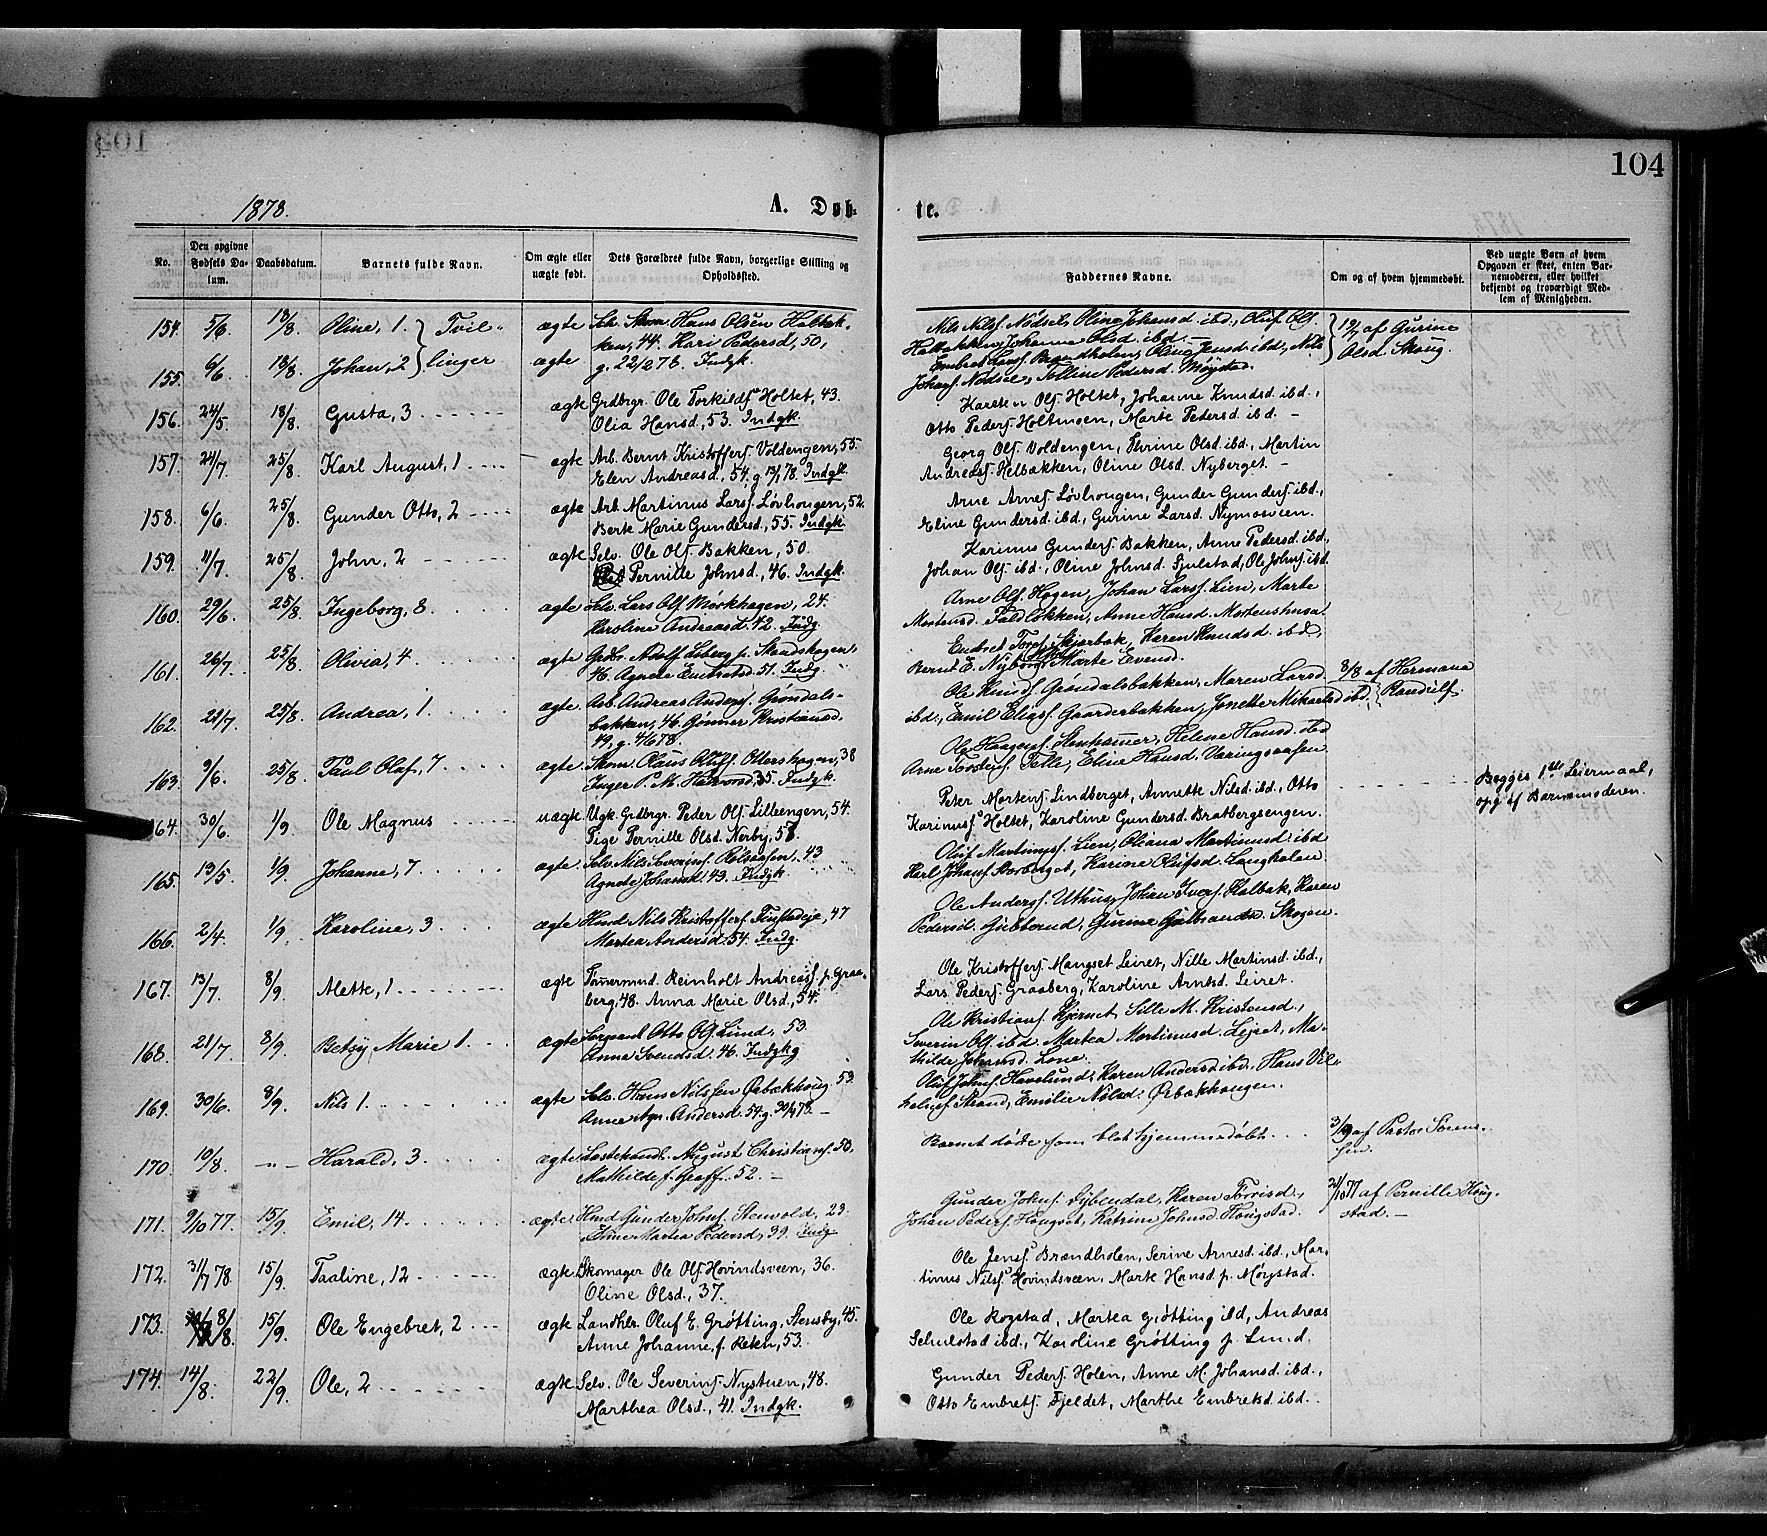 104
1878.
A. Døb-
te.
No.
Den opgivne Fødsels Datum.
Daabsdatum.
Barnets fulde Navn.
Om ægte eller uægte født.
Dets Forældres fulde Navn, borgerlige Stilling og Opholdssted.
Faddernes Navne.
Om og af hvem hjemmedøbt.
Ved uægte Børn af hvem Opgaven er skeet, enten Barnemoderen, eller hvilket bekjendt og troværdigt Medlem af Menigheden.
154. 5/6 18/8 Oline, 1. Tvil- ægte Hans Olsen Holbæk-
ken, 44. Kari Pedersd, 50,
155. 6/6 18/8 Johan, 2 linger ægte g. 22/2 78. Indgk.
Nils Nilsf Nødsel, Oline Johansd ibd., Oluf Ols.
Holbækken, Johanne Olsd ibd. —
Embret Larsf. Brændholen, Oline Jensd ibd., Nils
Johansf Nødsel, Polline Pedersd. Møystad.
19/7 af Gurine
Olsd. Skoug.
156. 24/5 18/8 Gusta, 3 ægte Grdbrgr. Ole Torkildsf Holtet, 43.
Olia Hansd., 53. Indgk.
Karsten Olsf Holtet, Johanne Knudsd ibd.,
Otto Pedersf. Holtmoen, Marte Pedersd ibd. —
157. 24/7 25/8 Karl August, 1 ægte Arb. Bernt Kristoffersf. Voldengen, 55.
Elen Andreasd., 54, g 13/1 78. Indgk
Georg Olsf. Voldengen, Thrine Olsd. ibd., Martin
Andreasf. Helbakken, Oline Olsd. Nyberget. —
158. 6/6 25/8 Gunder Otto, 2 ægte Arb. Martinus Larsf. Løvhougen, 52.
Berte Marie Gundersd., 55. Indgk
Arne Arnesf Løvhougen, Gunder Gundersf. ibd.,
Eline Gundersd. ibd., Gurine Larsd. Nymosveen.
159. 11/7 25/8 John, 2 ægte Selv. Ole Olsf Bakken, 50.
Pernille Johnsd., 46. Indgk.
Karinus Gundersf. Bakken, Anne Pedersd. ibd.,
Johan Olsf ibd., Oline Johnsd. Fjulstad, Ole Johnsf. ibd.
160. 29/6 25/8 Ingeborg, 8 ægte Selv. Lars Olsf Mørkhagen, 24.
Karoline Andreasd. 42. Indg.
Arne Olsf. Hagen, Johan Larsf. Lien, Marte
Mortensd. Faldlökken, Anne Hansd. Mortenshusa.
161. 26/7 25/8 Olivia, 4 ægte Grdbr. Adolf Liberg p. Skadshagen,
46. Agnete Embretsd. 51. Indg.
Endret Skjærbæk, Karen Knudsd ibd,
Bernt E. Nyborg, Marte Evensd.
162. 21/7 25/8 Andrea, 1 ægte Arb. Andreas Andersf. Grøndals-
bakken, 46. Gønner Kristiansd.
49, g. 4/6 78.
Ole Knudsf. Grøndalsbakken, Maren Larsd
ibd., Emil Eliasf. Gaarderbakken, Jonette Mikaelsd ibd.
8/8 af Hermana
163. 9/6 25/8 Paul Olaf, 7 ægte Claus Olufsf. Ottershagen, 38
Inger P. M. Halvorsd, 35. Indgk.
Ole Haagensf. Stenhammer, Helene Hansd. ibd
Arne Torstensf. Telle, Eline Hansd. Væringsaasen.
164. 30/6 1/9 Ole Magnus uægte Ugk. Grdbrgr. Peder Olsf. Lilleengen, 54.
Pige Pernille Olsd. Nerby, 57.
Peter Mortensf. Lindberget, Annette Nilsd. ibd., Otto
Karinusf Holtet, Karoline Gundersd. Bratbergsengen.
Begges 1ste Leiermaal,
opg af Barnemoderen.
165. 13/5 1/9 Johanne, 7 ægte Selv. Nils Severinsf. Rølsaasen, 43
Agnete Johansd. 43. Indgk.
Oluf Martinusf. Lien, Oliana Martinusd. ibd
Karl Johansf Korberget, Karine Olufsd. Langholen.
166. 2/4 1/9 Karoline, 3 ægte Husmd Nils Kristoffersf. Finstadeje, 47
Martea Andersd. 54. Indg.
Ole Andersf. Uthus, Johan Iversf. Kalbæk, Karen
Pedersd. Gubberud, Gurine Gulbrandsd. Skogen.
167. 13/7 8/9 Mette, 1 ægte Tømmermd. Reinholt Andreasf p. Graa-
berg, 48. Anna Marie Olsd., 54.
Ole Kristoffersf. Mangset Leiret, Nille Martinsd. ibd.,
Lars Pedersf. Graaberg, Karoline Arntsd. Leiret.
168. 21/7 8/9 Betsy Marie 1. ægte Sergeant Otto Olsf. Lund, 53
Anna Svendsd. 46. Indgk
Ole Kristiansf. Kjernet, Sille M. Kristensd.,
Severin Olsf. ibd. Martea Martinusd. Lejret, Ma-
thilde Johansd. Lone.
169. 30/6 8/9 Nils 1. ægte Selv. Hans Nilssen Ørbækhaug 53
Anne Agn. Andersd. 54. g. 30/11 73. —
Oluf Johnsf. Havslund, Karen Andersd ibd. Hans Vil-
helmsf. Strand, Emilie Nilsd. Ørbækhaugen.
170. 10/8 —"— Harald, 3 ægte August Christiansf. 50,
Mathilde f. Graff. 52. —
Barnet døde som blot hjemmedøbt.
af Pastor Søren-
sen.
171. 9/10 77. 15/9 Emil, 14. ægte Husmd Gunder Johnsf. Stenvold, 23.
Martea Pedersd, 39. Indg
Gunder Johnsf. Dybendal, Karen Torrisd.,
Johan Pedersf Haugset, Katrine Johnsd. Haugstad.
21/10 77 af Pernille Haug-
stad. —
172. 31/7 78. 15/9 Taaline, 12 ægte Skomager Ole Olsf Hovindsveen, 36.
Oline Olsd., 37.
Ole Jensf Brændholen, Serine Arnesd. ibd., Mar-
tinus Nilsf Hovindsveen, Marte Hansd. p. Møystad.
173. 8/8 15/9 Ole Engebret, 2 ægte Landhlr. Oluf E. Grøtting, Stensby, 45.
Anne Johanne, f. Reken, 53.
Ole Rogstad, Martea Grøtting ibd, Andreas
Schulstad ibd., Karoline Grøtting p. Lund.
174. 14/8. 22/9 Ole, 2 ægte Selv. Ole Severinsf. Nystuen, 48.
Marthea Olsd., 41. Indgk.
Gunder Pedersf. Holen, Anne M. Johansd. ibd.,
Otto Embretsf. Fjeldet, Marthe Embretsd. ibd.